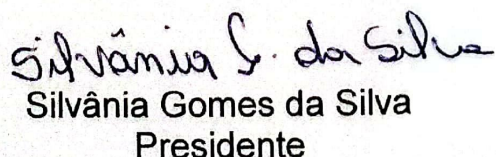 Silvânia G. da Silva
Silvânia Gomes da Silva
Presidente